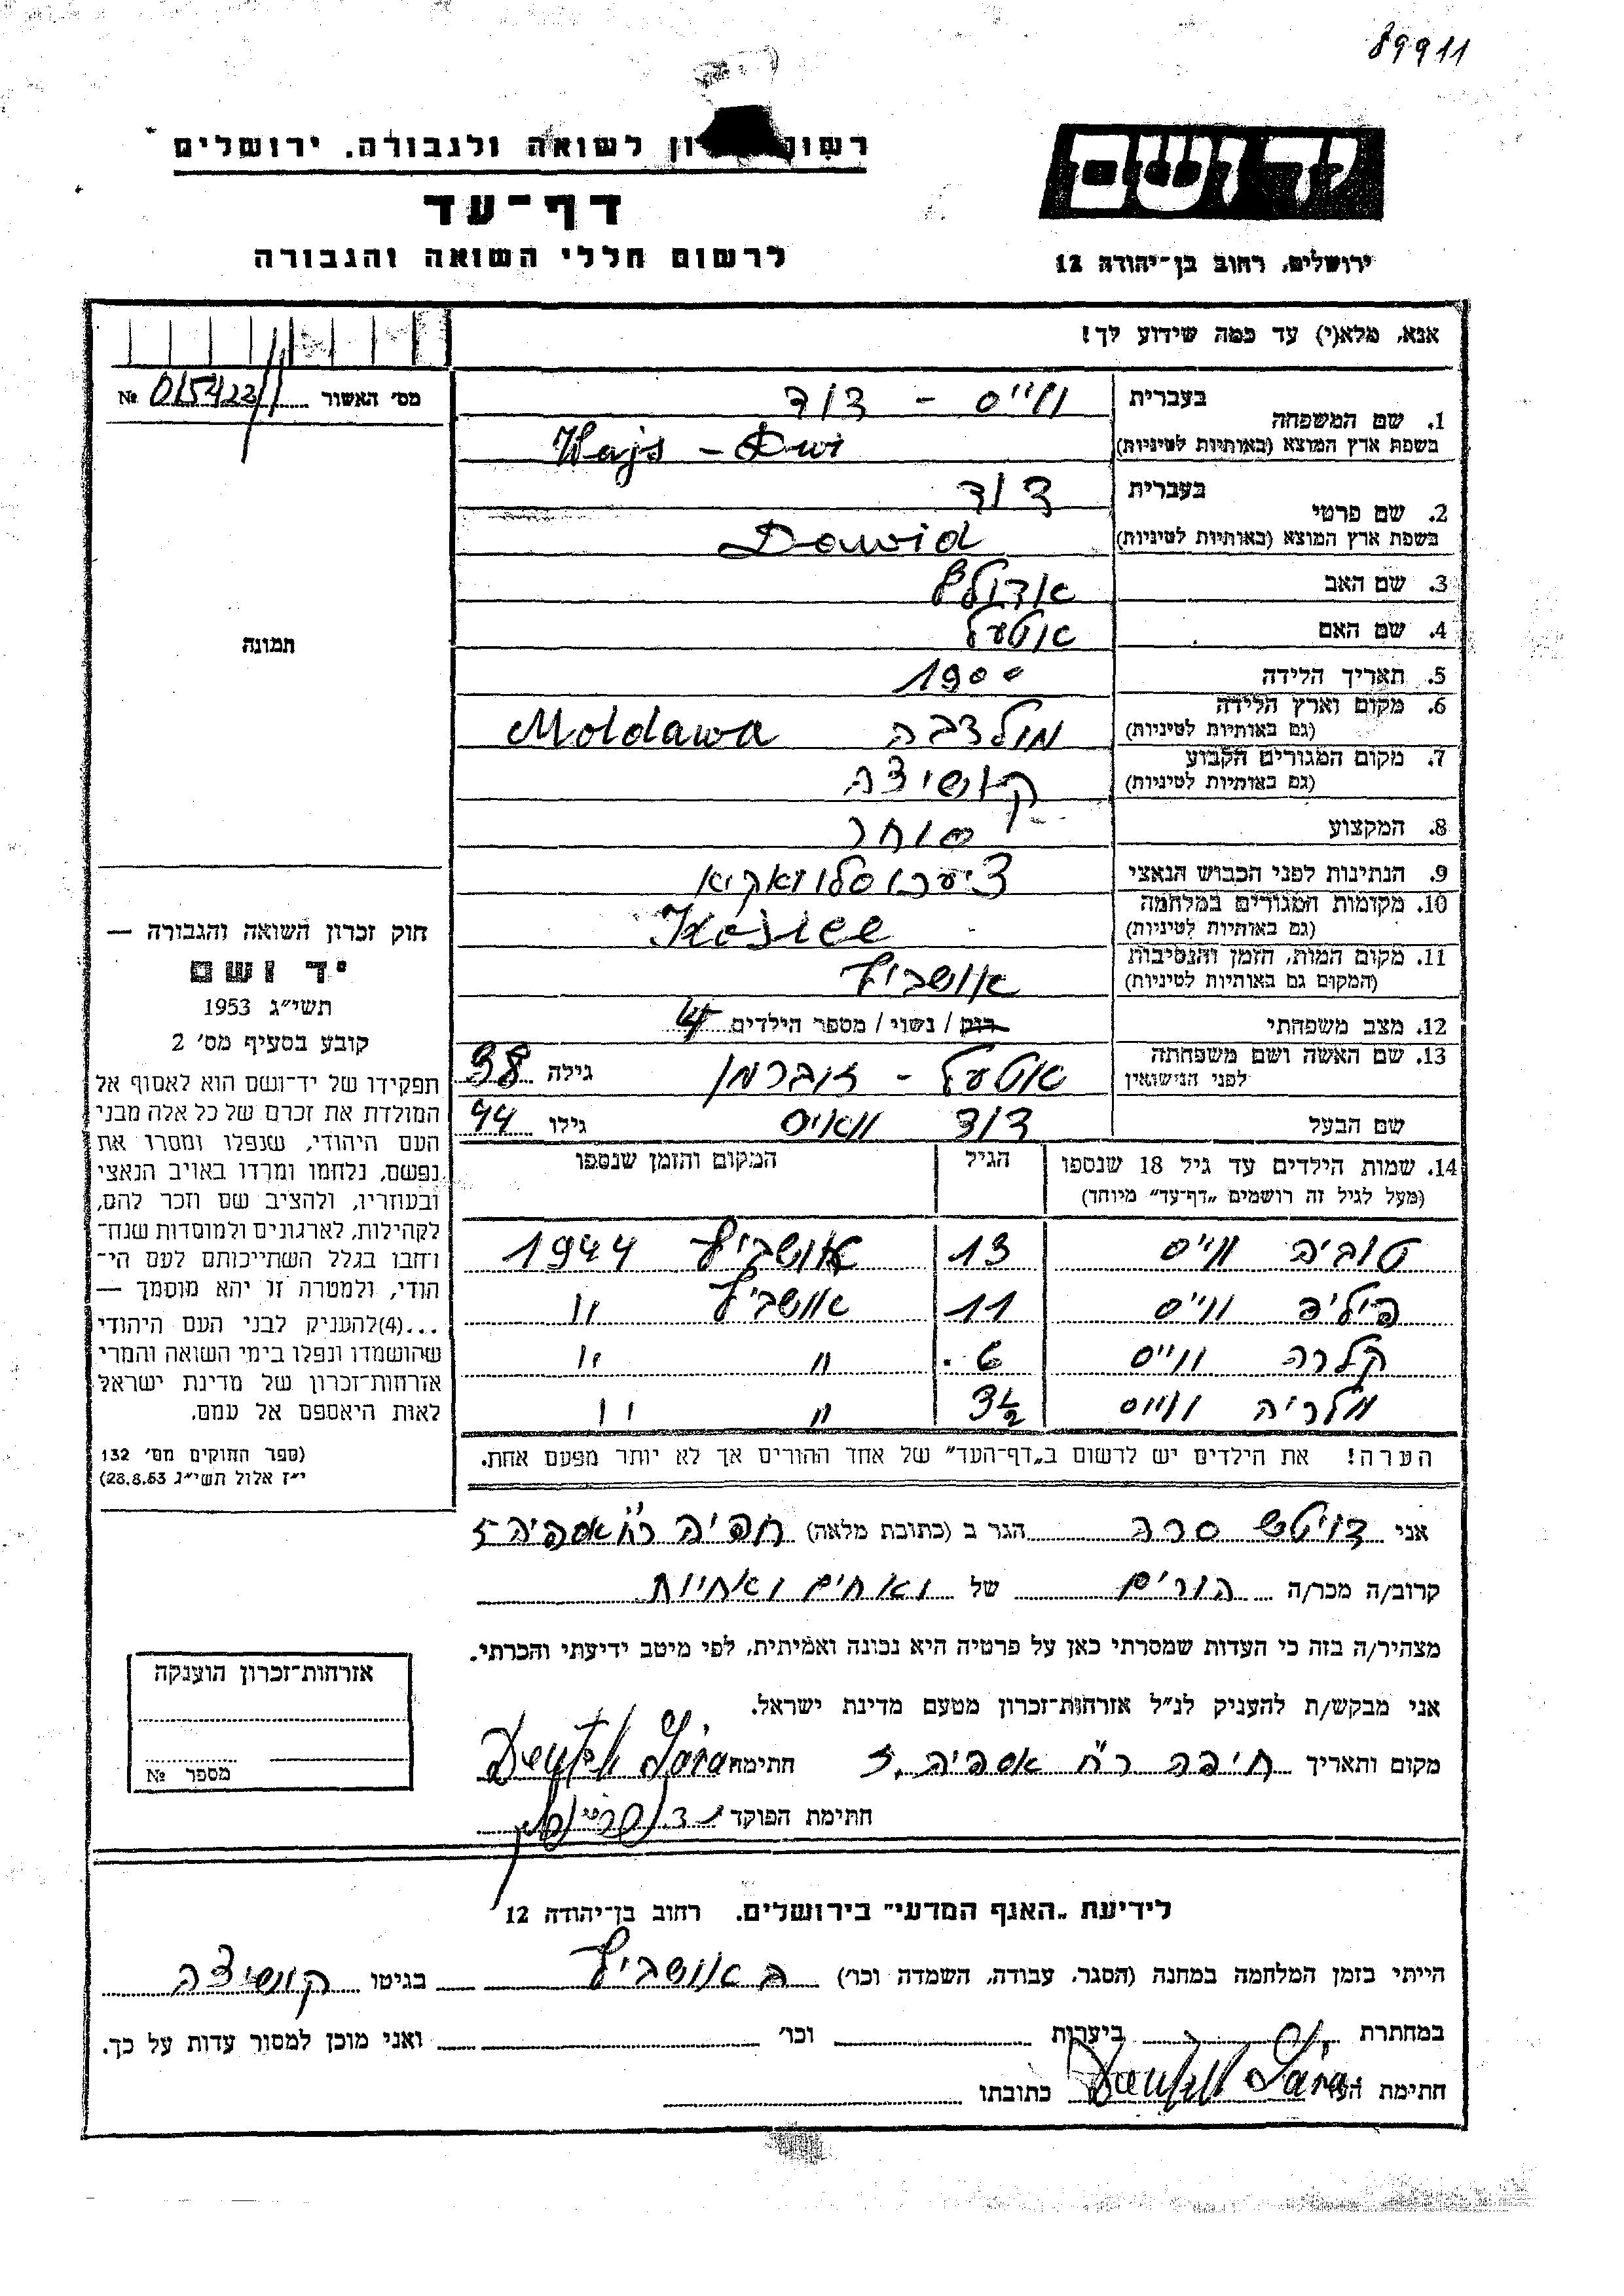 89911
רשות לשואה ולגבורה. ירושלים
דף-עד
לרשום חללי השואה והגבורה
יד ושם
ירושלים, רחוב בן-יהודה 12
אנא, מלא(י) עד כמה שידוע לך!
מס׳ האשור № 015422
1. שם המשפחה
בעברית ווייס - דוד
בשפת ארץ המוצא (באותיות לטיניות) Wajs -
2. שם פרטי
בעברית דוד
בשפת ארץ המוצא (באותיות לטיניות) Dawid
3. שם האב אדולף
4. שם האם אטעל
5. תאריך הלידה 1900
6. מקום וארץ הלידה
(גם באותיות לטיניות) מולדבה Moldawa
7. מקום המגורים הקבוע
(גם באותיות לטיניות) קושיצה
8. המקצוע סוחר
9. הנתינות לפני הכבוש הנאצי
10. מקומות המגורים במלחמה
(גם באותיות לטיניות)
11. מקום המות, הזמן והנסיבות
(המקום גם באותיות לטיניות) אושביץ
12. מצב משפחתי רווק / נשוי / מספר הילדים 4
13. שם האשה ושם משפחתה
לפני הנישואין אטעל - זוברמן גילה 38
שם הבעל דוד וואיס גילו 44
14. שמות הילדים עד גיל 18 שנספו
(מעל לגיל זה רושמים „דף-עד״ מיוחד)
הגיל
המקום והזמן שנספו
טוביה ווייס 13 אושביץ 1944
פיליפ ווייס 11 אושביץ "
קלרה ווייס 6 " "
ווייס 3½ " "
הערה! את הילדים יש לרשום ב„דף-העד״ של אחד ההורים אך לא יותר מפעם אחת.
תמונה
חוק זכרון השואה והגבורה —
יד ושם
תשי״ג 1953
קובע בסעיף מס׳ 2
תפקידו של יד-ושם הוא לאסוף אל
המולדת את זכרם של כל אלה מבני
העם היהודי, שנפלו ומסרו את
נפשם, נלחמו ומרדו באויב הנאצי
ובעוזריו, ולהציב שם וזכר להם,
לקהילות, לארגונים ולמוסדות שנח־
רחבו בגלל השתייכותם לעם הי־
הודי, ולמטרה זו יהא מוסמך —
...(4)להעניק לבני העם היהודי
שהושמדו ונפלו בימי השואה והמרי
אזרחות-זכרון של מדינת ישראל
לאות היאספם אל עמם.
(ספר החוקים מס׳ 132
י״ז אלול תשי״ג 28.8.53)
אני דויטש שרה הגר ב (כתובת מלאה) חיפה
קרוב/ה מכר/ה הורים של ואחים ואחיות
מצהיר/ה בזה כי העדות שמסרתי כאן על פרטיה היא נכונה ואמיתית, לפי מיטב ידיעתי והכרתי.
אני מבקש/ת להעניק לנ״ל אזרחות-זכרון מטעם מדינת ישראל.
מקום ותאריך חיפה חתימה Deutsch Sára
חתימת הפוקד
אזרחות-זכרון הוענקה
מספר №
לידיעת „האגף המדעי״ בירושלים. רחוב בן-יהודה 12
הייתי בזמן המלחמה במחנה (הסגר, עבודה, השמדה וכו׳) באושביץ בגיטו קושיצה
במחתרת ביערות וכו׳ ואני מוכן למסור עדות על כך.
חתימת העד Deutsch Sára כתובתו